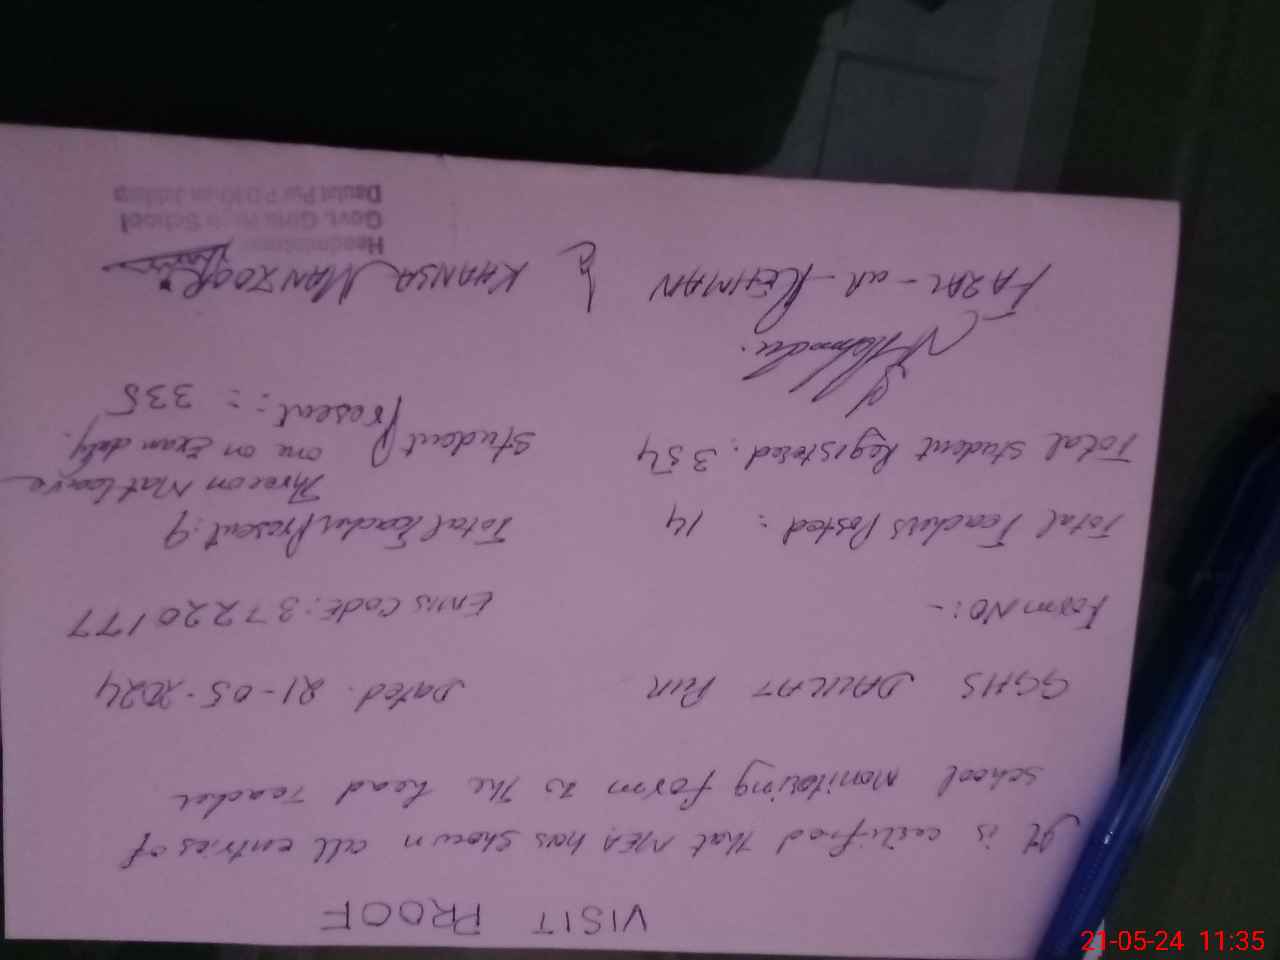 VISIT PROOF
It is certified that MEA has shown all entries of
school monitoring form to the head Teacher
GGHS DAULAT PUR Dated. 21-05-2024
Form NO:- EMIS CODE: 37220177
Total Teachers Posted: 14 Total Teacher Present: 9
Three on Mat leave
one on Exam duty.
Total student Registered: 354 Student Present: = 335
FAZAL-ur-REHMAN KHANSA MANZOOR
Headmistress
Govt. Girls High School
Daulat Pur P.D.Khan Jehlum
21-05-24 11:35